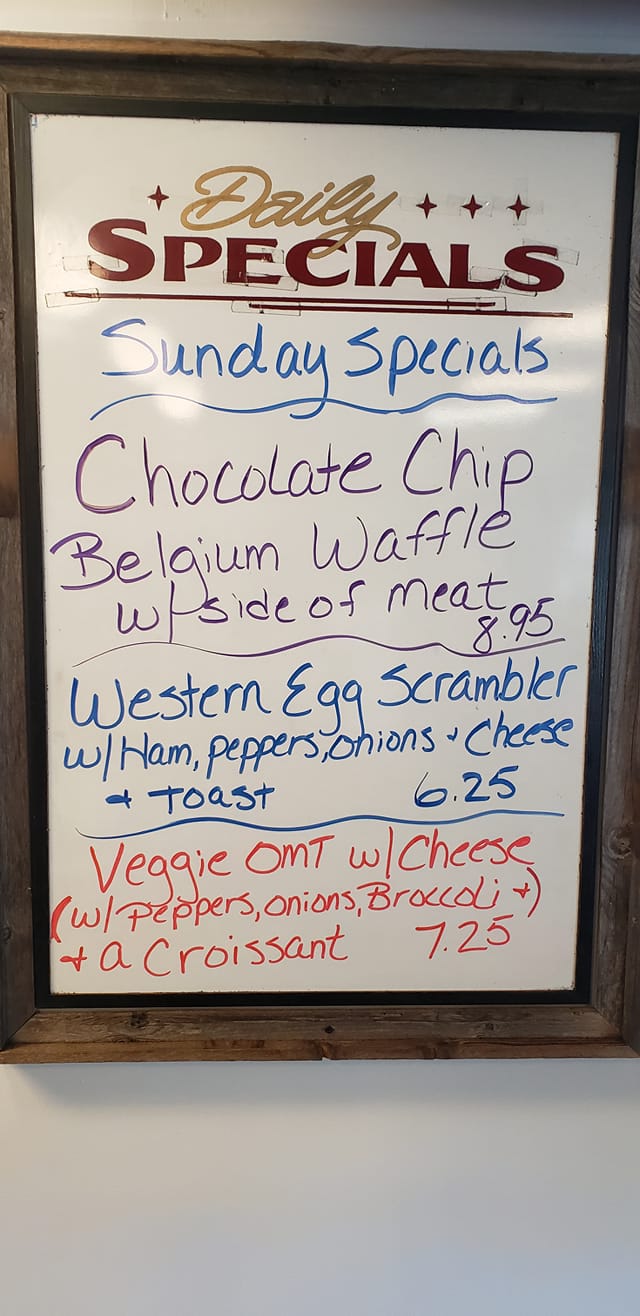 Daily
SPECIALS
Sunday Specials
Chocolate Chip
Belgium Waffle
w/side of meat
8.95
Western Egg Scrambler
w/Ham, peppers, onions + Cheese
+ Toast 6.25
Veggie OMT w/Cheese
(w/Peppers, onions, Broccoli +)
+ a Croissant 7.25